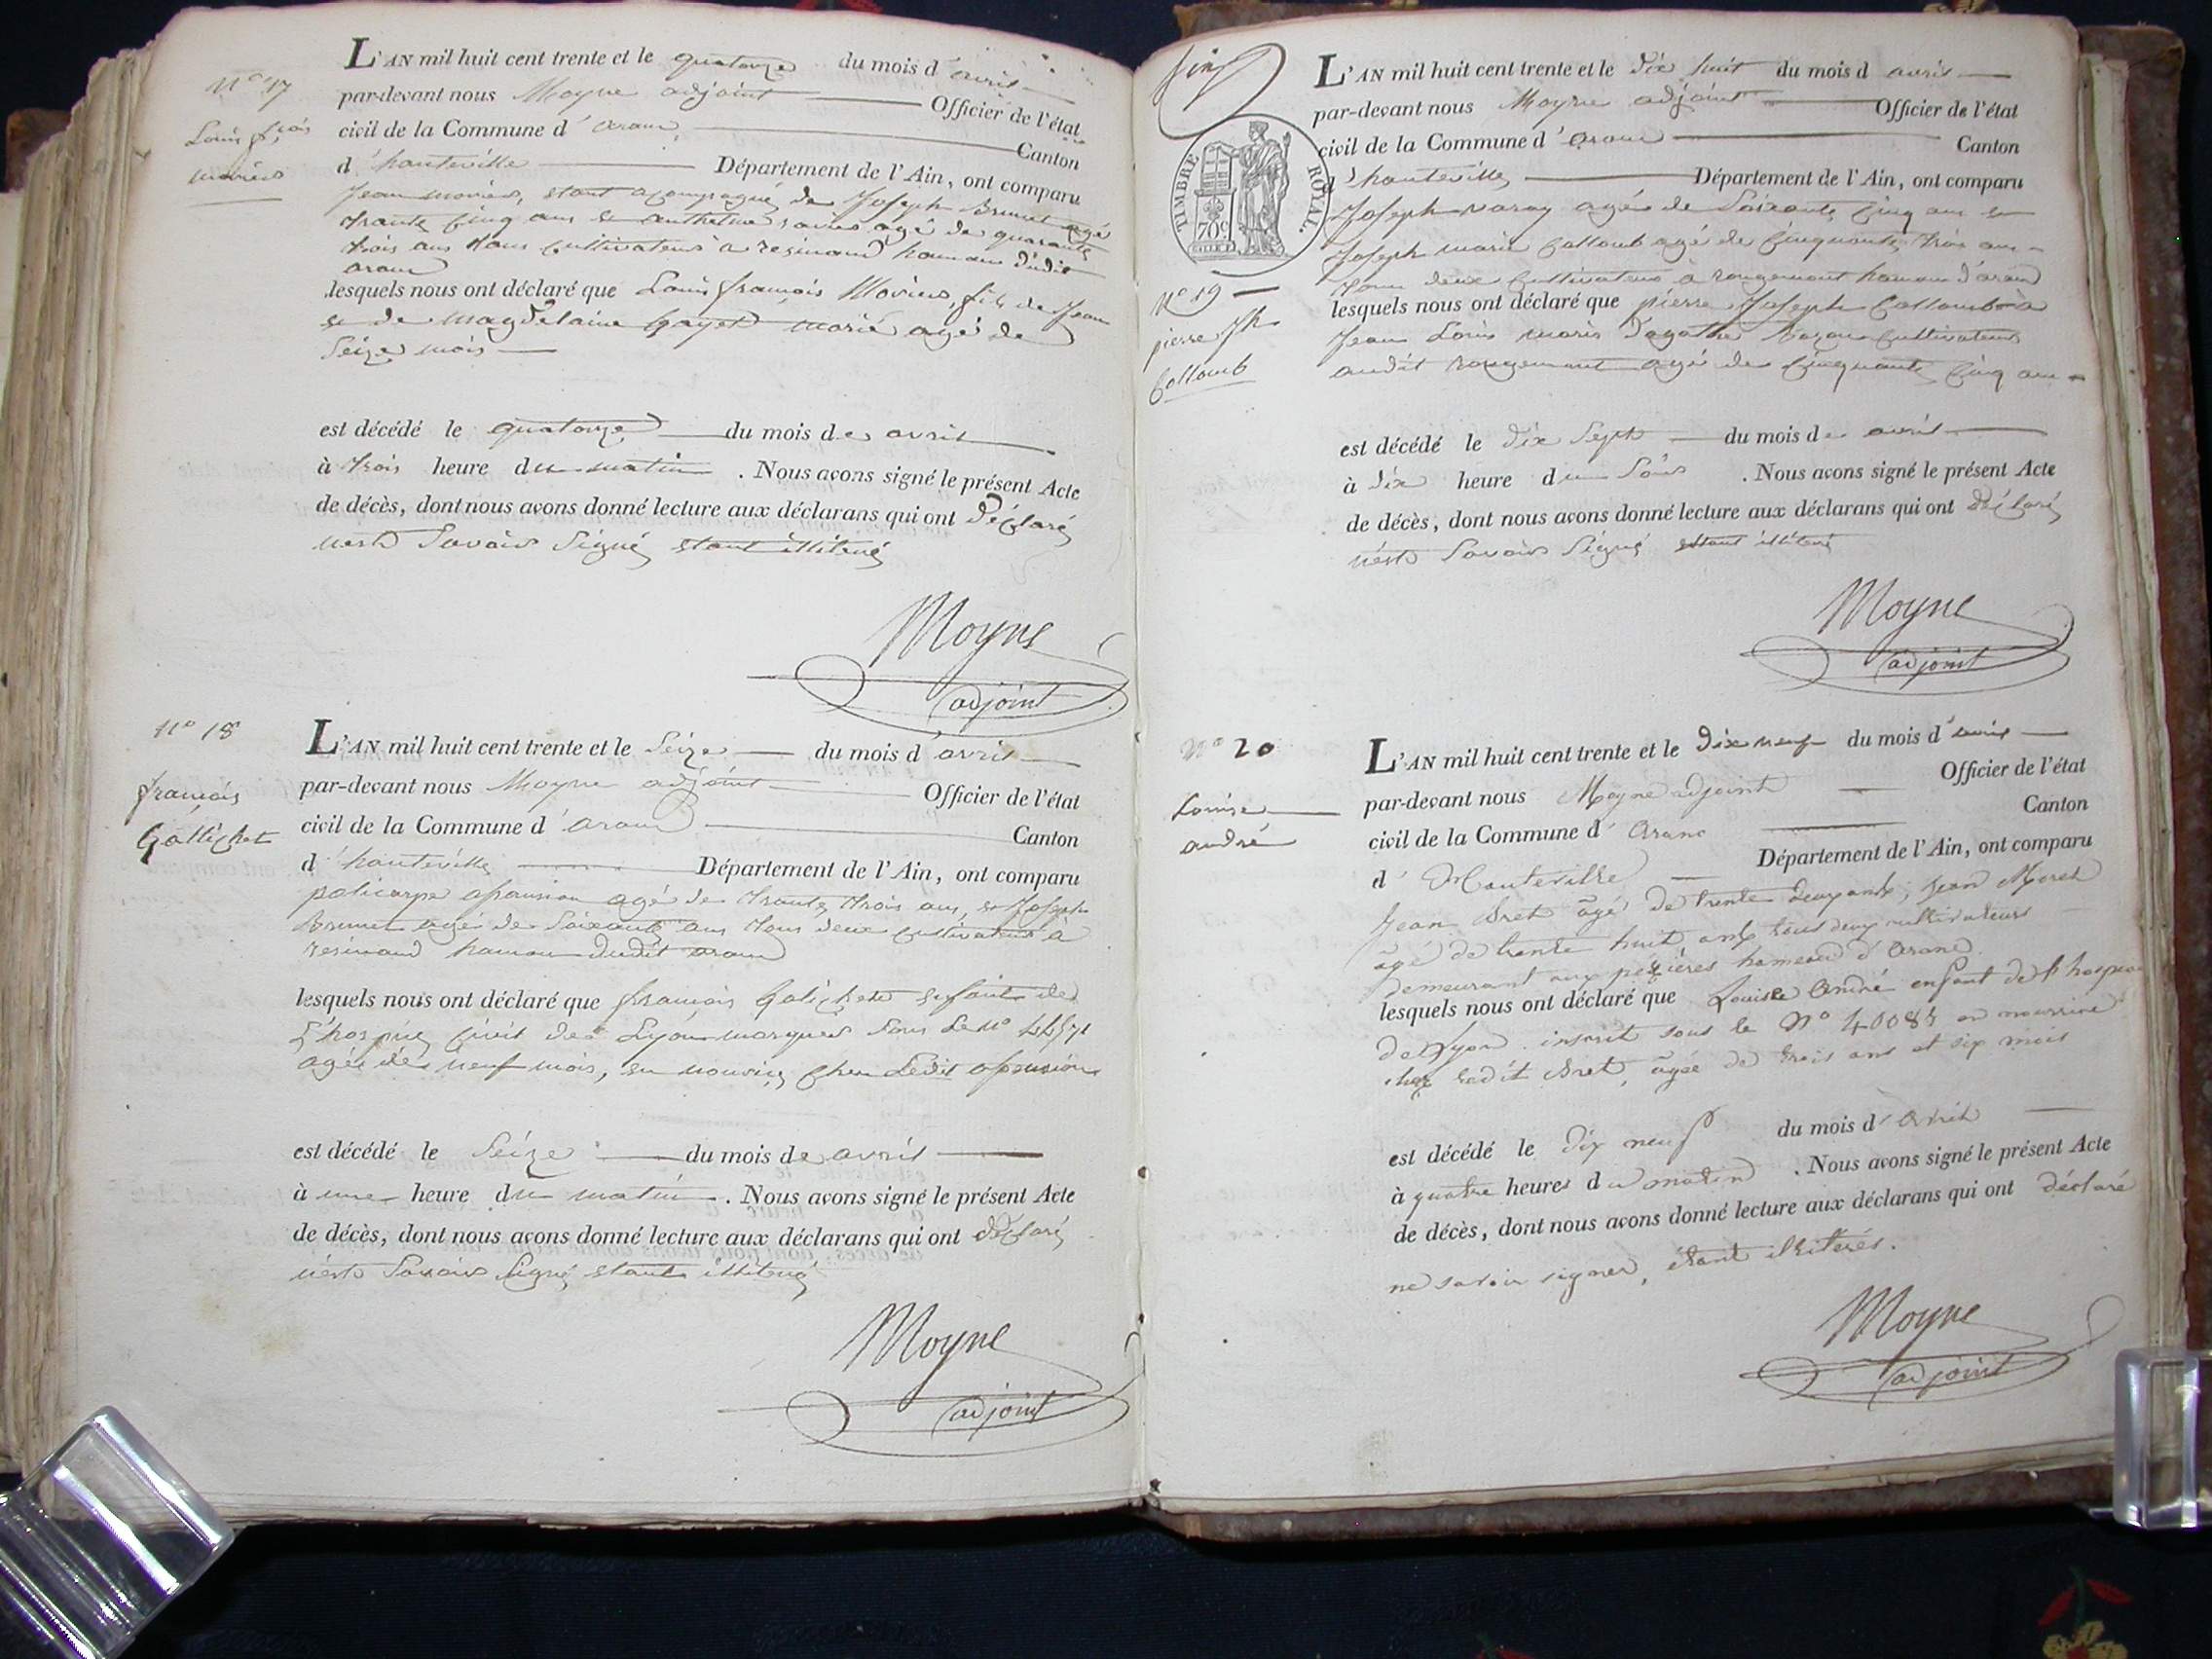 N° 17
Louis fçois
Moviers
L'AN mil huit cent trente et le quatorze du mois d'avril
par-devant nous Moyne adjoint Officier de l'état
civil de la Commune d'aranc Canton
d'hauteville Département de l'Ain, ont comparu
Jean étant acompagné de Joseph Brunet agé
trante cinq ans et anthelme agé de quarante
trois ans tous cultivateurs a resinand hameau dudit
aranc
lesquels nous ont déclaré que Louis françois fils de Jean
et de magdelaine marié agé de
Seize mois
est décédé le quatorze du mois de avril
à trois heure du matin. Nous avons signé le présent Acte
de décès, dont nous avons donné lecture aux déclarans qui ont déclaré
Savoir Signé étant
Moyne
adjoint
N° 18
françois
Gallichet
L'AN mil huit cent trente et le Seize du mois d'avril
par-devant nous Moyne adjoint Officier de l'état
civil de la Commune d'aranc Canton
d'hauteville Département de l'Ain, ont comparu
policarpe agé de trante trois ans, et Joseph
Brunet agé de Soixante ans tous deux cultivateurs à
resinand hameau dudit aranc
lesquels nous ont déclaré que françois Galichet enfant de
L'hospice civil de Lyon marqué sous le N°
agé de neuf mois, en nourice chez Ledit
est décédé le Seize du mois de avril
à une heure du matin. Nous avons signé le présent Acte
de décès, dont nous avons donné lecture aux déclarans qui ont déclaré
Savoir Signé étant
Moyne
adjoint
TIMBRE ROYAL.
70 c
N° 19
pierre Jh
Collomb
L'AN mil huit cent trente et le dix huit du mois d avril
par-devant nous Moyne adjoint Officier de l'état
civil de la Commune d'aranc Canton
d'hauteville Département de l'Ain, ont comparu
Joseph agé de Soixante cinq ans et
Joseph marie Collomb agé de cinquante trois ans
tous deux cultivateurs a rougemont hameau d'aranc
lesquels nous ont déclaré que pierre Joseph Collomb à
Jean Louis maris d'agathe cultivateur
audit rougemont agé de cinquante cinq ans
est décédé le dix Sept du mois de avril
à dix heure du Soir. Nous avons signé le présent Acte
de décès, dont nous avons donné lecture aux déclarans qui ont déclaré
Savoir Signé étant
Moyne
adjoint
N° 20
Louise
andré
L'AN mil huit cent trente et le Dix neuf du mois d'avril
par-devant nous Moyne adjoint Officier de l'état
civil de la Commune d'Aranc Canton
d'Hauteville Département de l'Ain, ont comparu
Jean Bret âgé de trente deux ans, Jean
âgé de trente huit ans tous deux cultivateurs
demeurant aux pézières hameau d'Aranc
lesquels nous ont déclaré que Louise André enfant de l'hospice
de Lyon inscrit sous le N° en nourrice
chez ledit Bret, âgée de trois ans et six mois
est décédé le dix neuf du mois d'Avril
à quatre heures du matin. Nous avons signé le présent Acte
de décès, dont nous avons donné lecture aux déclarans qui ont déclaré
ne savoir signer, étant illiterés.
Moyne
adjoint